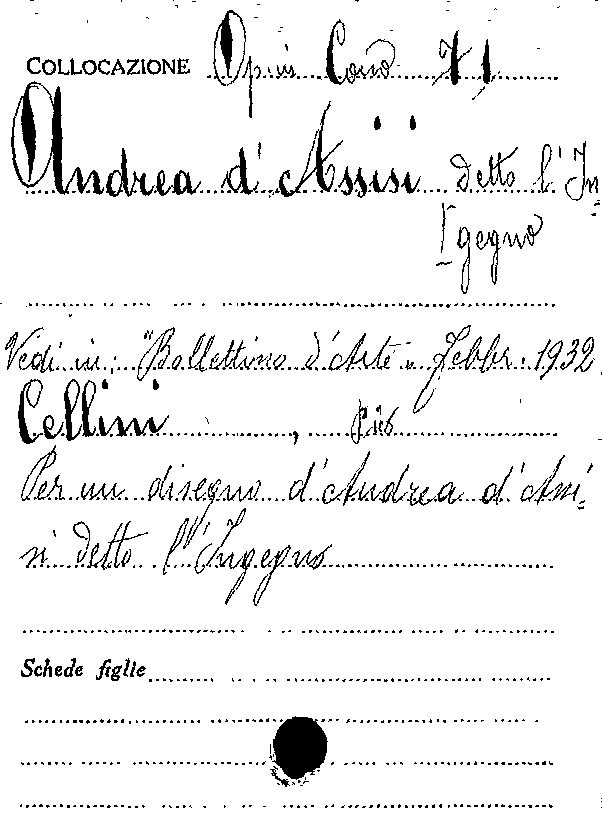 COLLOCAZIONE Op. in Cons 71
Andrea d'Assisi detto l'In=
gegno
Vedi in: "Bollettino d'Arte" Febbr. 1932
Cellini, Pio
Per un disegno d'Andrea d'Assi=
si detto l'Ingegno
Schede figlie